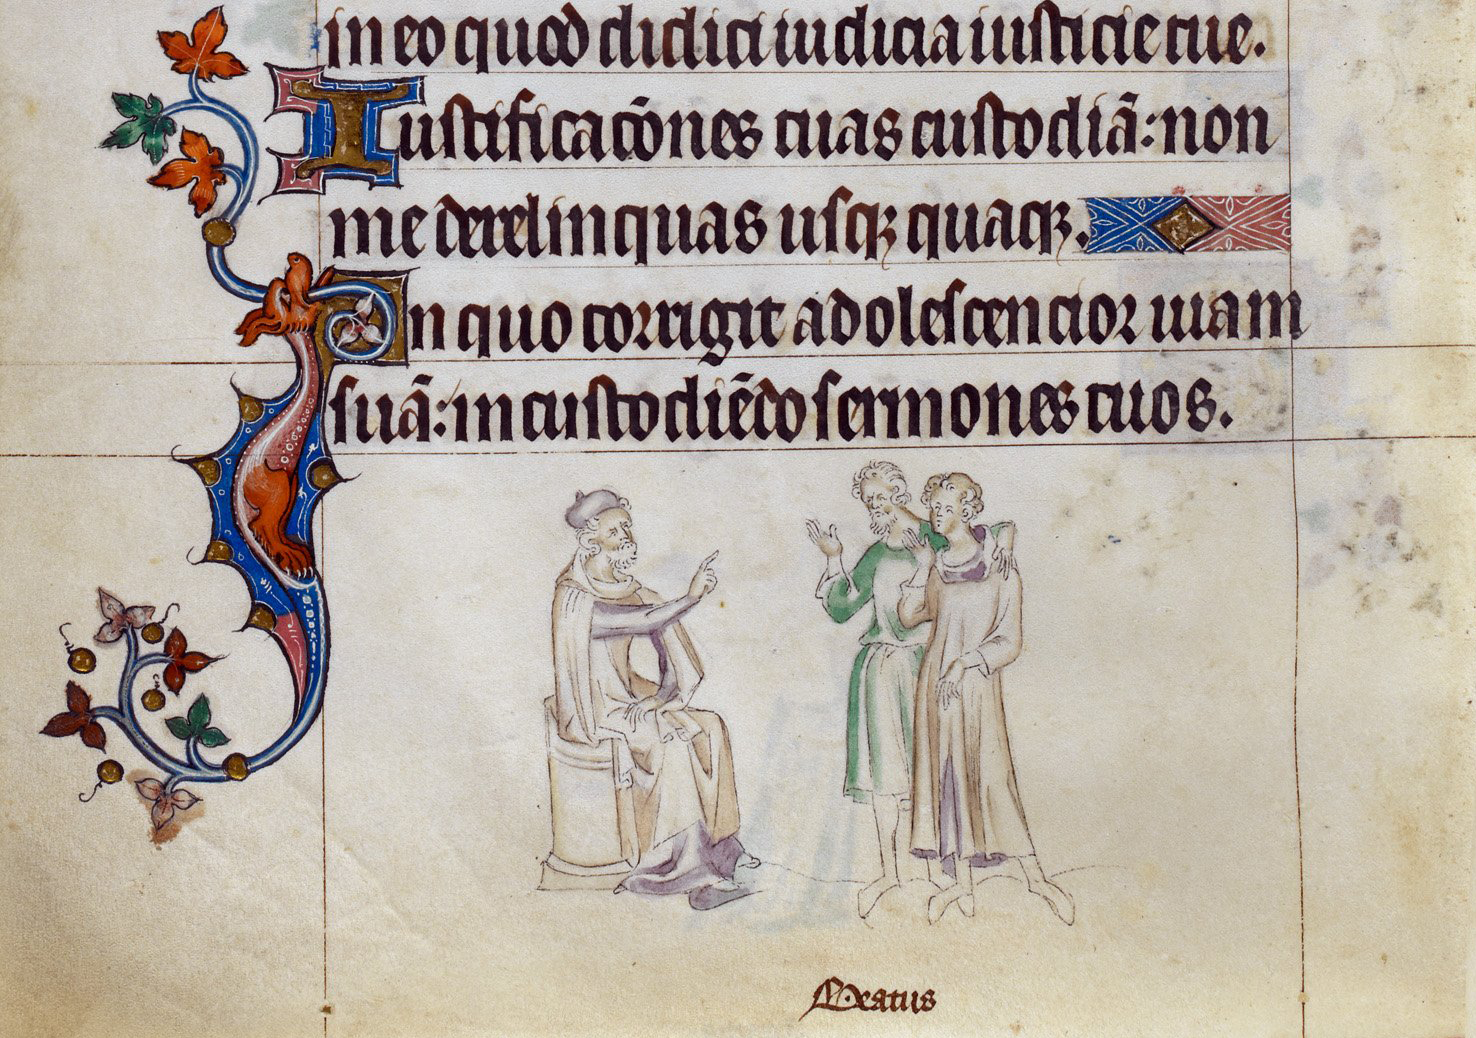 in eo quod didici iudicia iusticie tue.
Iustificac̄ones tuas custodiā: non
me derelinquas usqꝫ quaqꝫ.
In quo corrigit adolescencior uiam
suā: in custodiēdo sermones tuos.
Beatus